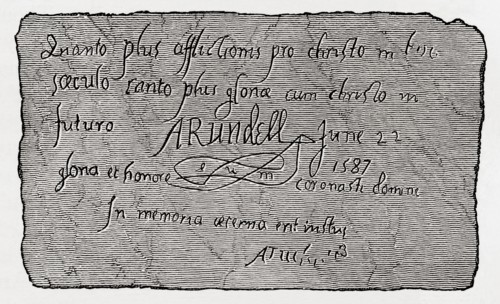 Quanto plus afflictionis pro christo in hoc
sæculo tanto plus gloriæ cum christo in
futuro ARundell June 22
1587
gloria et honore e u m coronasti domine
In memoria æterna erit iustus